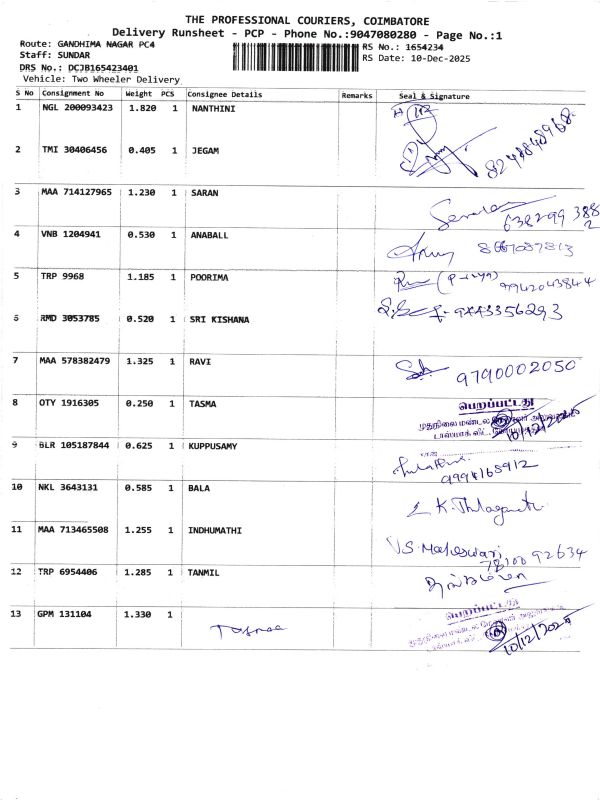 THE PROFESSIONAL COURIERS, COIMBATORE
Delivery Runsheet - PCP - Phone No.:9047080280 - Page No.:1
Route: GANDHIMA NAGAR PC4
RS No.: 1654234
Staff: SUNDAR
RS Date: 10-Dec-2025
DRS No.: DCJB165423401
Vehicle: Two Wheeler Delivery
S No Consignment No Weight PCS Consignee Details Remarks Seal & Signature
1 NGL 200093423 1.820 1 NANTHINI
2 TMI 30406456 0.405 1 JEGAM 8248848968
3 MAA 714127965 1.230 1 SARAN Saran 638299 3882
4 VNB 1204941 0.530 1 ANABALL 8667087813
5 TRP 9968 1.185 1 POORIMA 9942043844
6 RMD 3053785 0.520 1 SRI KISHANA 9443356293
7 MAA 578382479 1.325 1 RAVI 9790002050
8 OTY 1916305 0.250 1 TASMA பெறப்பட்டது
முதுநிலை மண்டல
டாஸ்மாக் லிட்.
10/12/2025
9 BLR 105187844 0.625 1 KUPPUSAMY
9994165912
10 NKL 3643131 0.585 1 BALA K.
11 MAA 713465508 1.255 1 INDHUMATHI V.S. Maheswari
78100 92634
12 TRP 6954406 1.285 1 TANMIL
13 GPM 131104 1.330 1 Tasmac பெறப்பட்டது
முதுநிலை மண்டல
10/12/2025